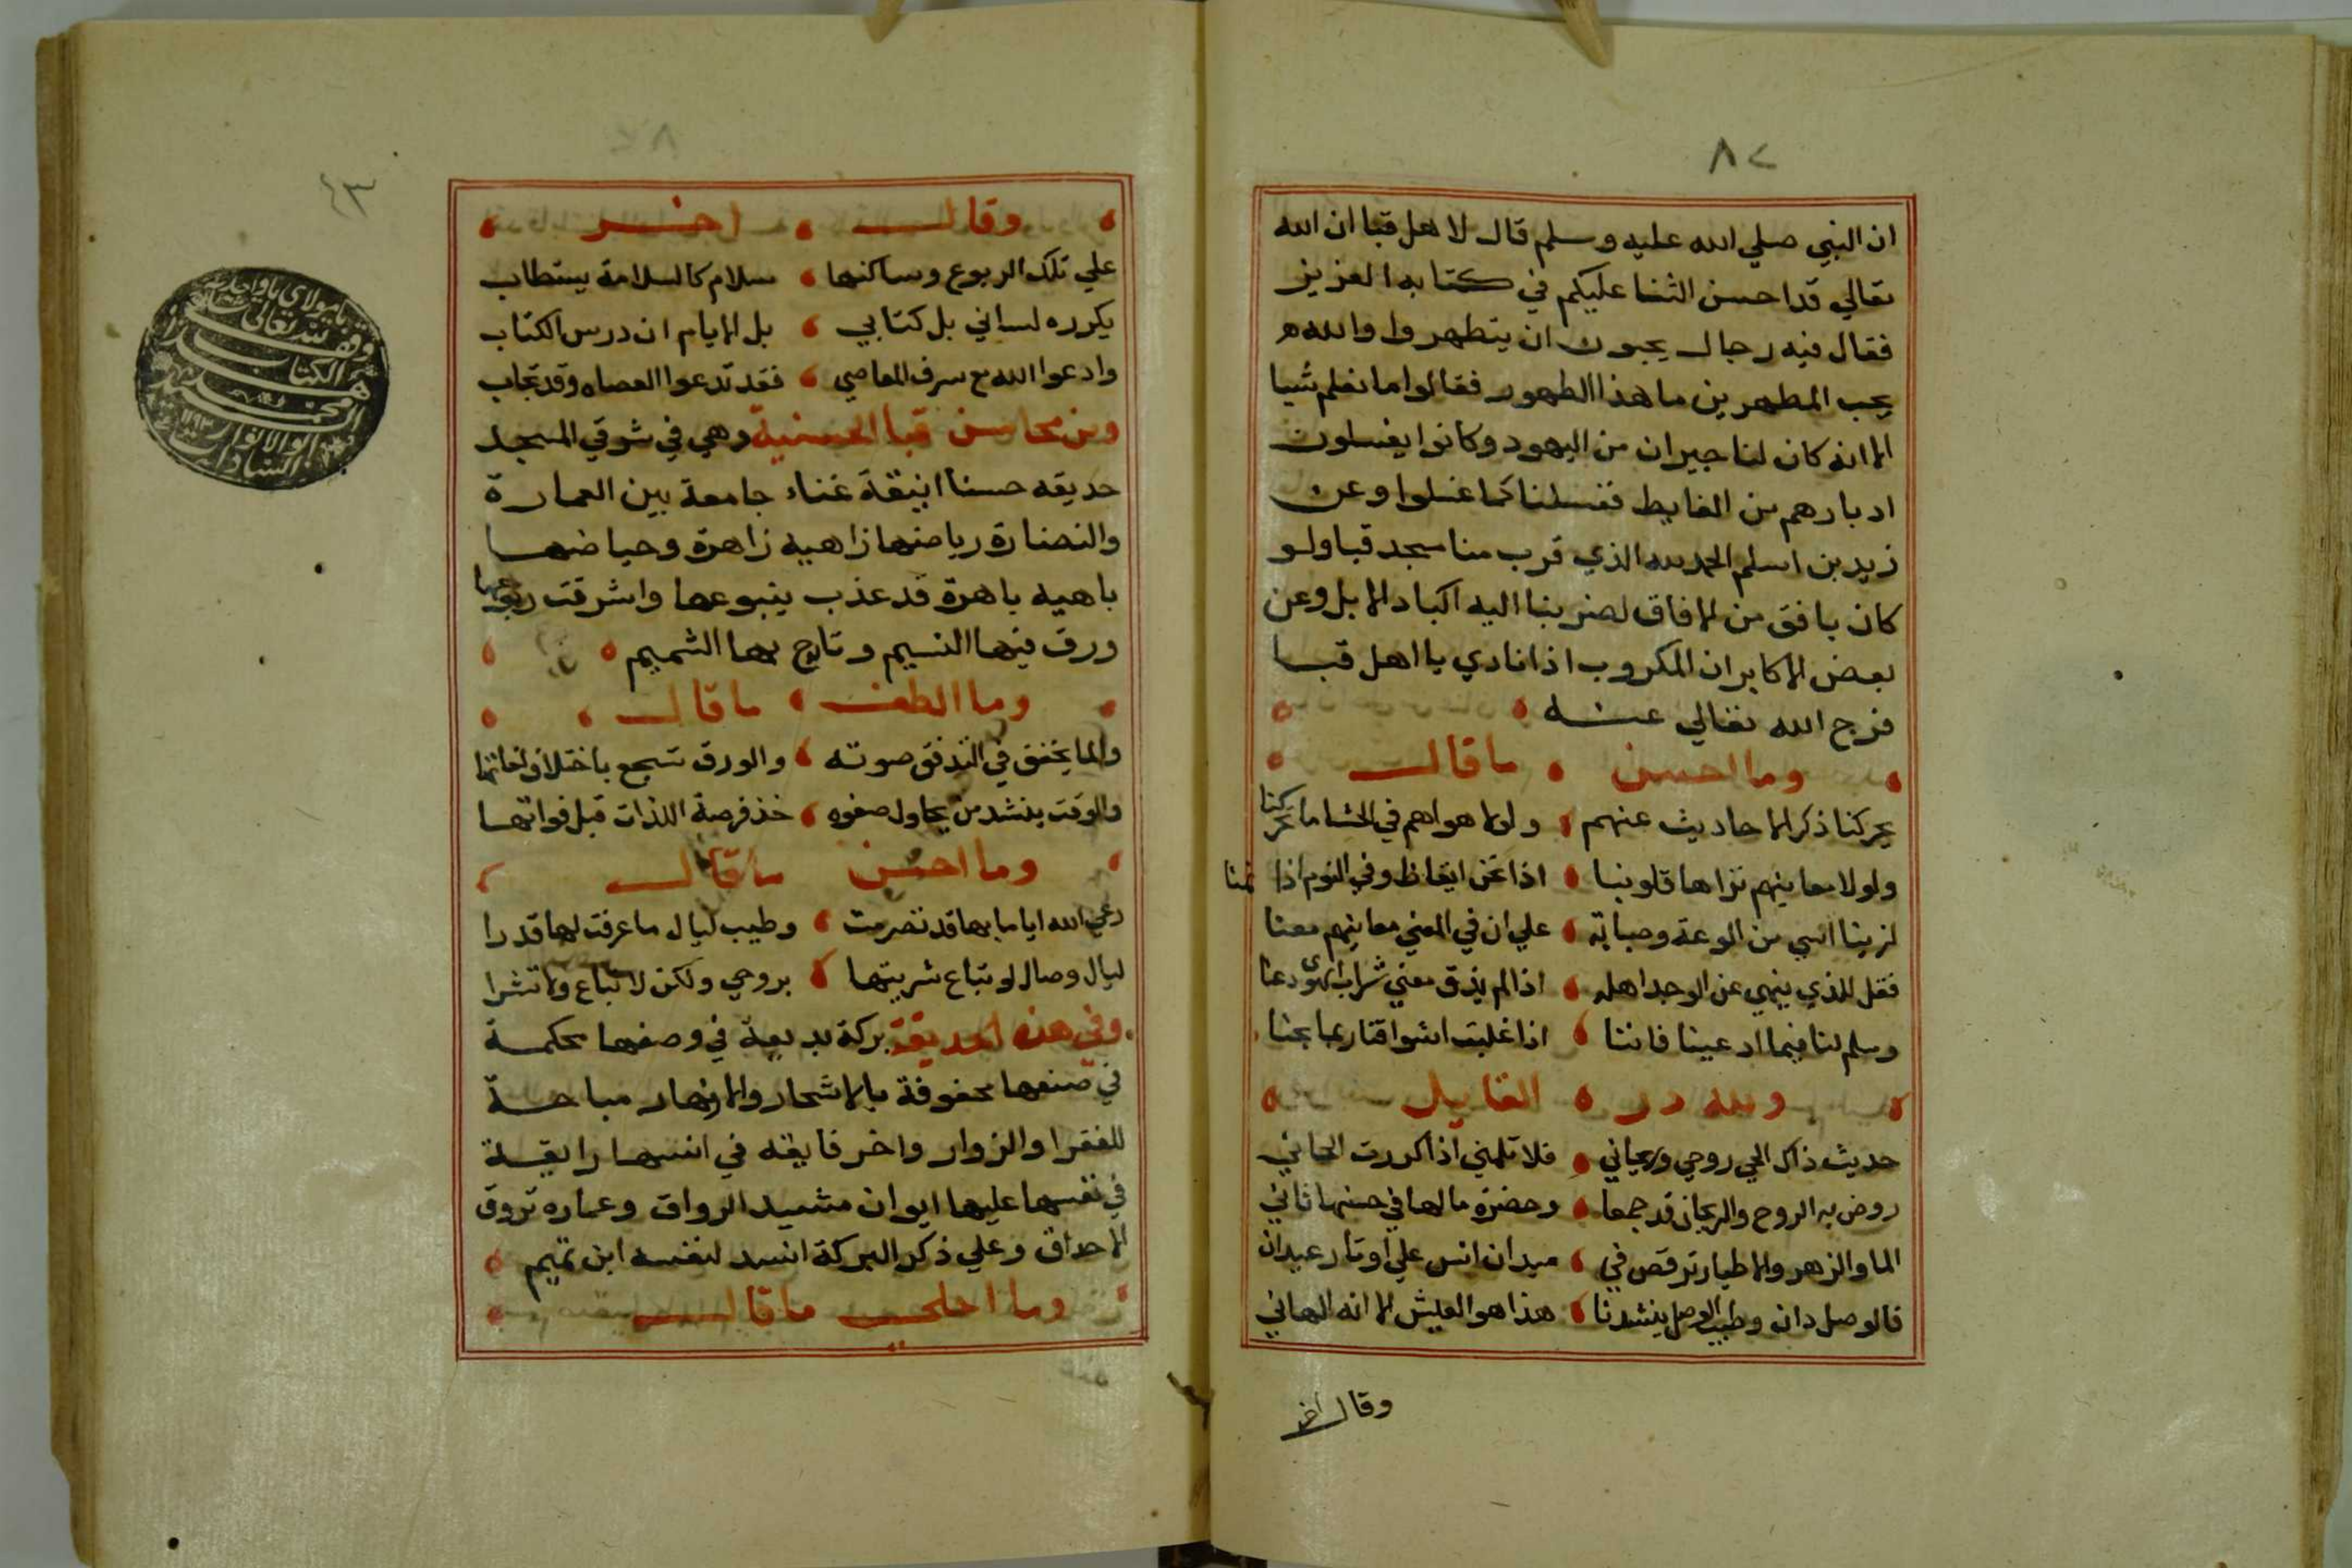 ٨٢
ان النبي صلي الله عليه وسلم قال لاهل قبا ان الله
تعالي قد احسن الثنا عليكم في كتابه العزيز
فقال فيه رجال يحبون ان يتطهروا والله
يحب المطهرين ما هذا الطهور فقالوا ما نعلم شيا
الا انه كان لنا جيران من اليهود وكانوا يغسلون
ادبارهم من الغايط فغسلنا كما غسلوا وعن
زيد بن اسلم الحمد لله الذي قرب منا مسجد قبا ولو
كان بافق من الافاق لضربنا اليه اكباد الابل وعن
بعض الاكابر ان المكروب اذا نادي يا اهل قبا
فرج الله تعالي عنه
وما احسن ما قال
يحركنا ذكر الاحاديث عنهم ولولا هواهم في الحشا ما تحركنا
ولولا معانيهم تراها قلوبنا اذا نحن ايقاظ وفي النوم اذا نمنا
لزينا اسي من الوعة وصبابة علي ان في المعني معانيهم معنا
فقل للذي ينهي عن الوجد اهله اذا لم يذق معني شراب الهوى دعنا
وسلم لنا فيما ادعينا فاننا اذا غلبت اشواقنا ربما بحنا
ولله در القايل
حديث ذاك الحي روحي وريحاني فلا تلمني اذا كررت الحاني
روض به الروح والريحان قد جمعا وحضرة ما لها في حسنها ثاني
الما والزهر والاطيار ترقص في ميدان انس علي اوتار عيدان
فالوصل دان وطيب الوصل ينشدنا هذا هو العيش الا انه الهاني
وقال اخر
٤٣
وقال اخر
علي تلك الربوع وساكنها سلام كالسلامة يستطاب
يكرره لساني بل كتابي بل الايام ان درس الكتاب
وادعوا الله مع سرف المعاصي فقد تدعوا العصاه وقد تجاب
ومن محاسن قبا الحسنية وهي في شوقي المسجد
حديقه حسنا انيقة غناء جامعة بين العمارة
والنضارة رياضها زاهيه زاهرة وحياضها
باهيه باهرة قد عذب ينبوعها واشرقت ربوعها
ورق فيها النسيم وتارج بها الشميم
وما الطف ما قال
والما يخفق في التدفق صوته والورق تسجع باختلاف لغاتها
والوقت ينشد من يحاول صفوه خذ فرصة اللذات قبل فواتها
وما احسن ما قال
رعي الله اياما بها قد تصرمت وطيب ليال ما عرفت لها قدرا
ليال وصال لو تباع شريتها بروحي ولكن لا تباع ولا تشرا
وفي هذه الحديقة بركة بديعة في وصفها محكمة
في صنعها محفوفة بالاشجار والانهار مباحة
للفقرا والزوار واخر فايقه في انسها رايقة
في نفسها عليها ايوان مشيد الرواق وعماره تروق
الاحداق وعلي ذكر البركة انسد لنفسه ابن تميم
وما احلي ما قال
وقف لله تعالى
هذا الكتاب
محمد
ابو الانوار
السادات